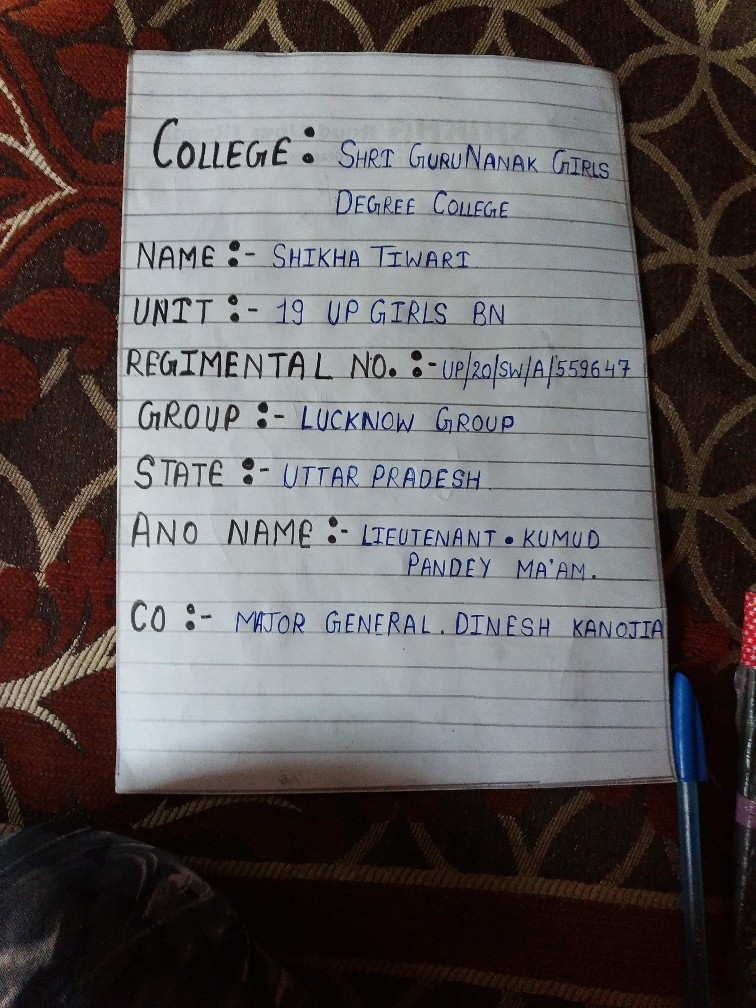 COLLEGE: SHRI GURUNANAK GIRLS
DEGREE COLLEGE
NAME :- SHIKHA TIWARI
UNIT :- 19 UP GIRLS BN
REGIMENTAL NO. :- UP/20/SW/A/559647
GROUP :- LUCKNOW GROUP
STATE :- UTTAR PRADESH
ANO NAME :- LIEUTENANT • KUMUD
PANDEY MA'AM.
CO :- MAJOR GENERAL. DINESH KANOJIA